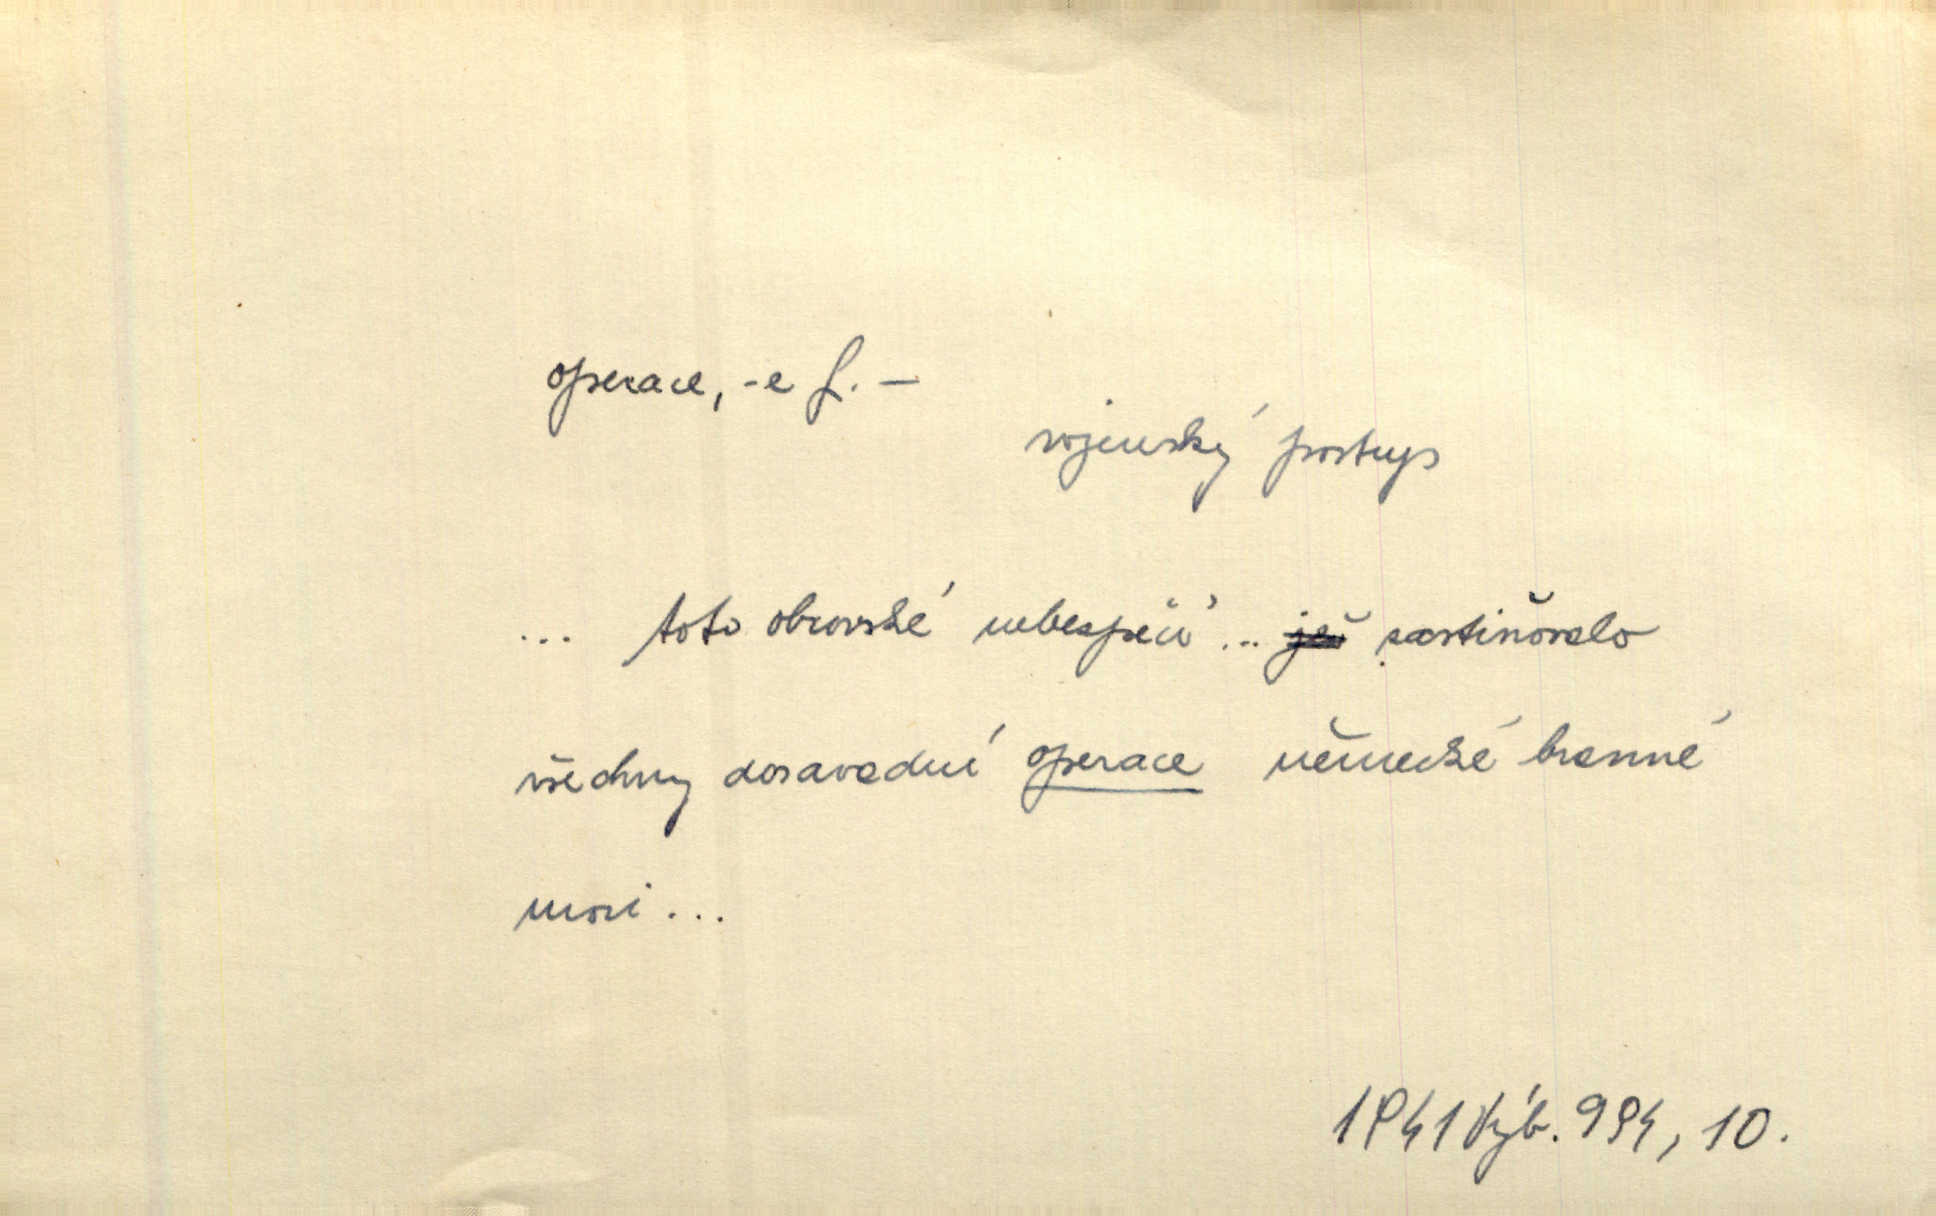 operace, -e f. —
vojenský postup
... toto obrovské nebezpečí ... zastiňovalo
všechny dosavadní operace německé branné
moci ...
1941 Výb. 994, 10.